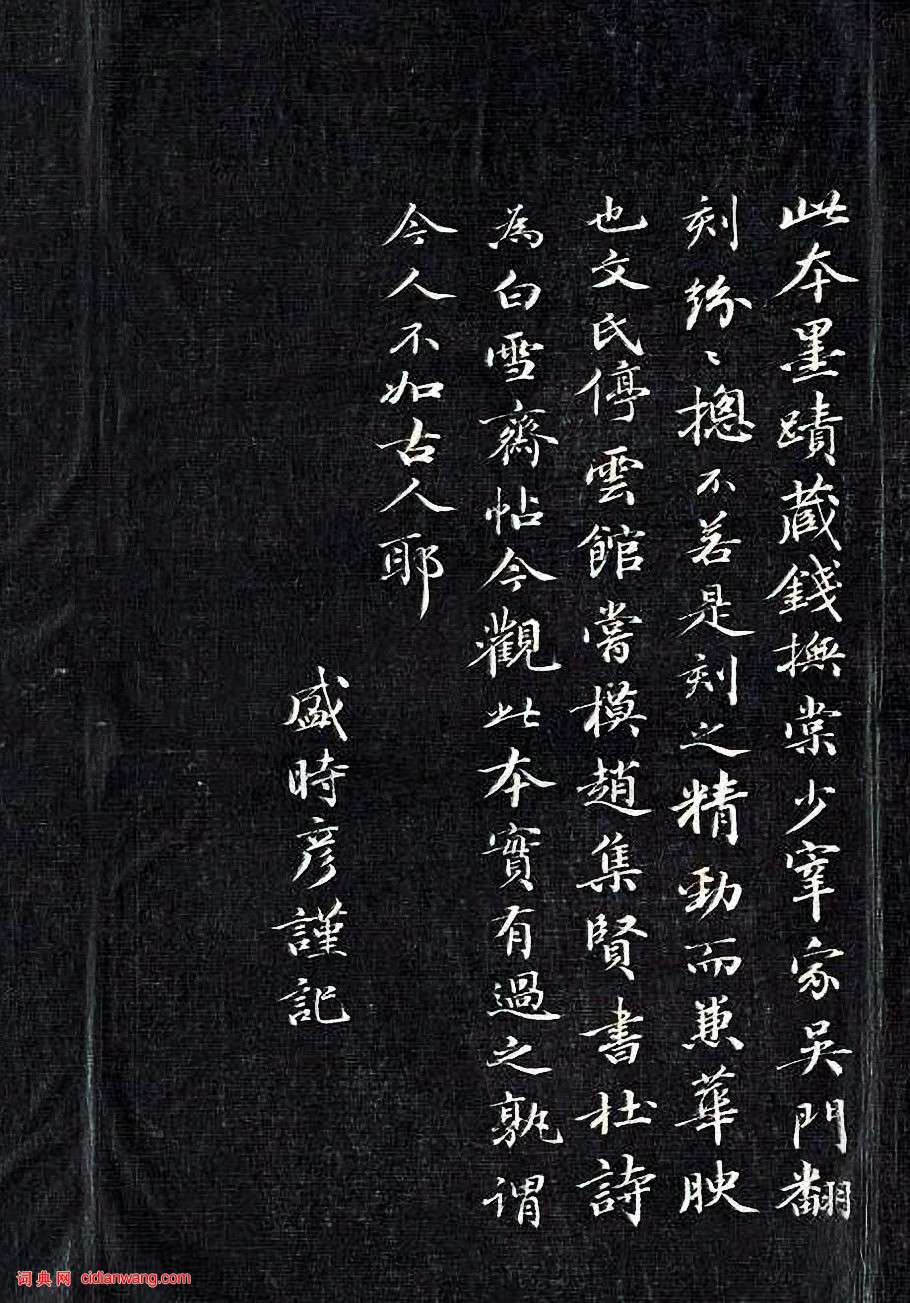 此本墨蹟藏錢撫棠少宰家吳門翻
刻紛〻摠不若是刻之精勁而兼華腴
也文氏停雲館嘗模趙集賢書杜詩
為白雪齋帖今觀此本實有過之孰謂
今人不如古人耶
盛時彥謹記
词典网 cidianwang.com